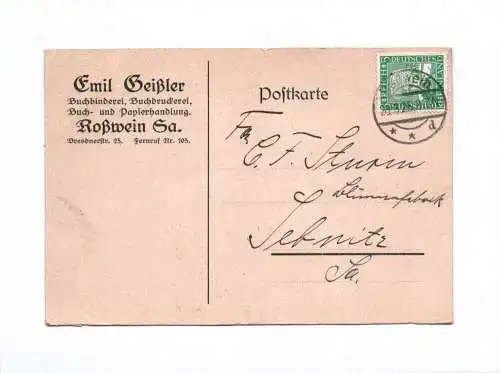 Emil Geißler
Buchbinderei, Buchdruckerei,
Buch- und Papierhandlung.
Roßwein Sa.
Dresdnerstr. 23. Fernruf Nr. 105.
Postkarte
DEUTSCHES
REICH
Fa.
C. F. Sturm
Blumenfabrik
Sebnitz
Sa.